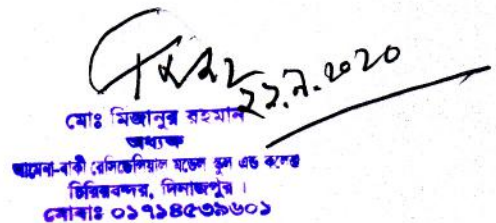 ২২.৯.২০২০
মোঃ মিজানুর রহমান
অধ্যক্ষ
আমেনা-বাকী রেসিডেন্সিয়াল মডেল স্কুল এন্ড কলেজ
চিরিরবন্দর, দিনাজপুর।
মোবাঃ ০১৭১৪৫৩৯৬০১